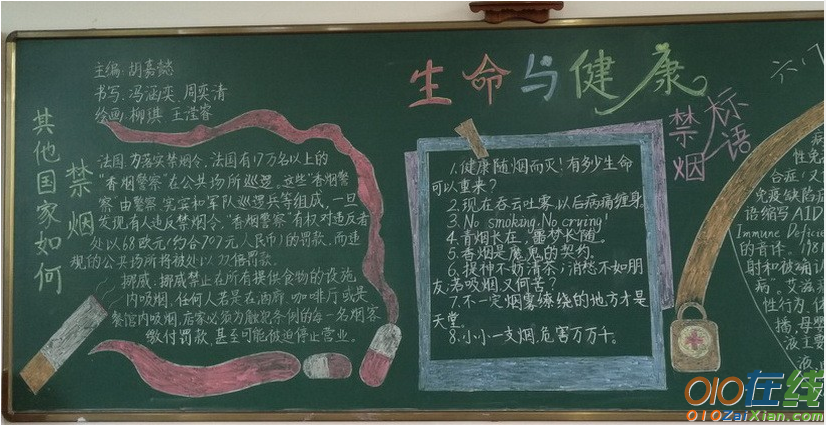 主编:胡嘉懿
书写:冯涵奕、周奕清
绘画:柳淇、王滢睿
其他国家如何
禁烟
法国:为落实禁烟令,法国有17万名以上的
“香烟警察”在公共场所巡逻。这些“香烟警
察”由警察、宪宾和军队巡逻兵等组成,一旦
发现有人违反禁烟令,“香烟警察”有权对违反者
处以68欧元(约合707元人民币)的罚款,而违
规的公共场所将被处以22倍罚款。
挪威:挪威禁止在所有提供食物的设施
内吸烟,任何人若是在酒廊、咖啡厅或是
餐馆内吸烟,店家必须为触犯条例的每一名烟客
缴付罚款,甚至可能被迫停止营业。
生命与健康
禁烟标语
1.健康随烟而灭!有多少生命
可以重来?
2.现在吞云吐雾,以后病痛缠身
3.No smoking,No crying!
4.青烟长在,噩梦长随。
5.香烟是魔鬼的契约。
6.提神不妨清茶,消愁不如朋
友;若吸烟又何苦?
7.不一定烟雾缭绕的地方才是
天堂。
8.小小一支烟,危害万万千。
六
性免
合症
免疫缺陷
语缩写AID
Immune Deficie
的音译。1981
射和被确认
病”。艾滋
性行为、
播,母婴
液主要
液
010在线
010ZaiXian.com